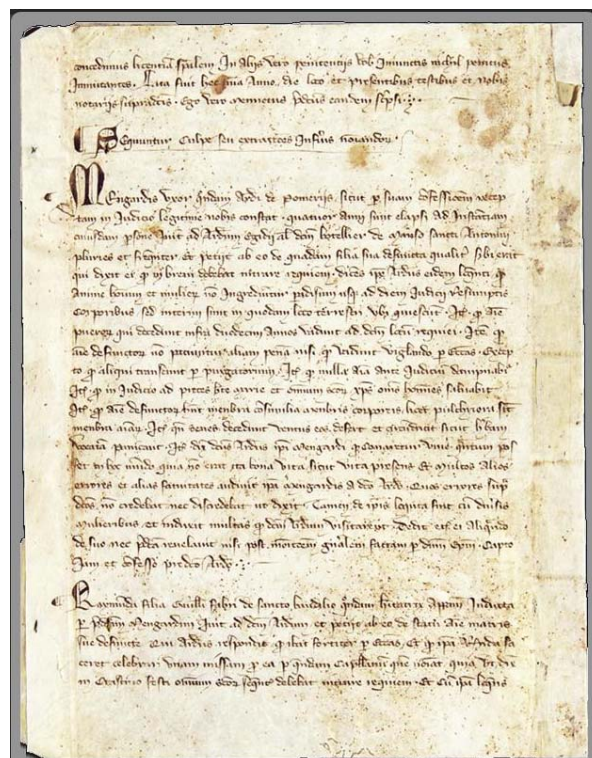 concedimus licentiam specialem In aliis vero penitentiis vobis Iniunctis nichil penitus
Inmutantes. Lata fuit hec sententia Anno die loco et presentibus testibus et nobis
notariis supradictis. Ego vero Mennetus predictus eandem scripsi.
Sequuntur Culpe seu extractiones Inferius nominandorum.
Mengardis uxor quondam Arnaldi de Pomeriis sicut per suam confessionem recep
tam in Iudicio legitime nobis constat. quatuor anni sunt elapsi ad Instantiam
cuiusdam persone Iuit ad Arnaldum Egidii alias dictum botellier de Manso sancti Antonini
plures et frequenter et petiit ab eo de quadam filia sua defuncta qualiter sibi erat
qui dixit ei quod in brevi debebat intrare requiem. dicens ipse Arnaldus eidem
Anime hominum et mulierum non Ingrediuntur paradisum usque ad diem Iudicii resumptis
Corporibus sed interim sunt in quodam loco terrestri ubi quiescunt. Item quod anime
puerorum qui decedunt infra duodecim Annos vadunt ad dictum locum requiei. Item quod
anime defunctorum non paciuntur aliam penam nisi quod vadunt vigilando per Ecclesias. Excep
to quod aliqui transeunt per purgatorium. Item quod nulla anima ante Iudicium dampnabitur
Item quod in Iudicio ad preces beate marie et omnium sanctorum Christus omnes homines salvabit
Item quod anime defunctorum habent membra consimilia membris corporis licet pulchriora sint
membra animarum. Item quando senes decedunt ventus eos defert et
paciuntur. Item dixit dictus Arnaldus ipsi Mengardi quod conaretur vivere quantum pos
set in hoc mundo quia non erat ita bona vita sicut vita presens Et multos Alios
errores et alias fatuitates audivit ipsa Mengardis a dicto Arnaldo. Quos errores supra
dictos non credebat nec discredebat ut dixit. Tamen de ipsis locuta fuit cum diversis
mulieribus. et induxit multas quod dictum Arnaldum visitarent. Dedit etiam ei Aliquid
de suo nec predicta revelavit nisi post monitionem generalem factam per dominum Episcopum. Capto
Iam et confesso predicto Arnaldo.
Raymunda filia Guillelmi Fabri de sancto Baudilio quondam habitatrix Appamiarum Inducta
per predictam Mengardim Iuit ad dictum Arnaldum. et petiit ab eo de statu anime matris
sue defuncte. Cui Arnaldus respondit quod ibat fortiter per Ecclesias. Et quod ipsa Raymunda fa
ceret celebrari unam missam pro ea per quendam Capellanum quem nominat. quia ut dixit
in Crastino festi omnium sanctorum sequentis debebat intrare requiem. Et cum ipsa loquens